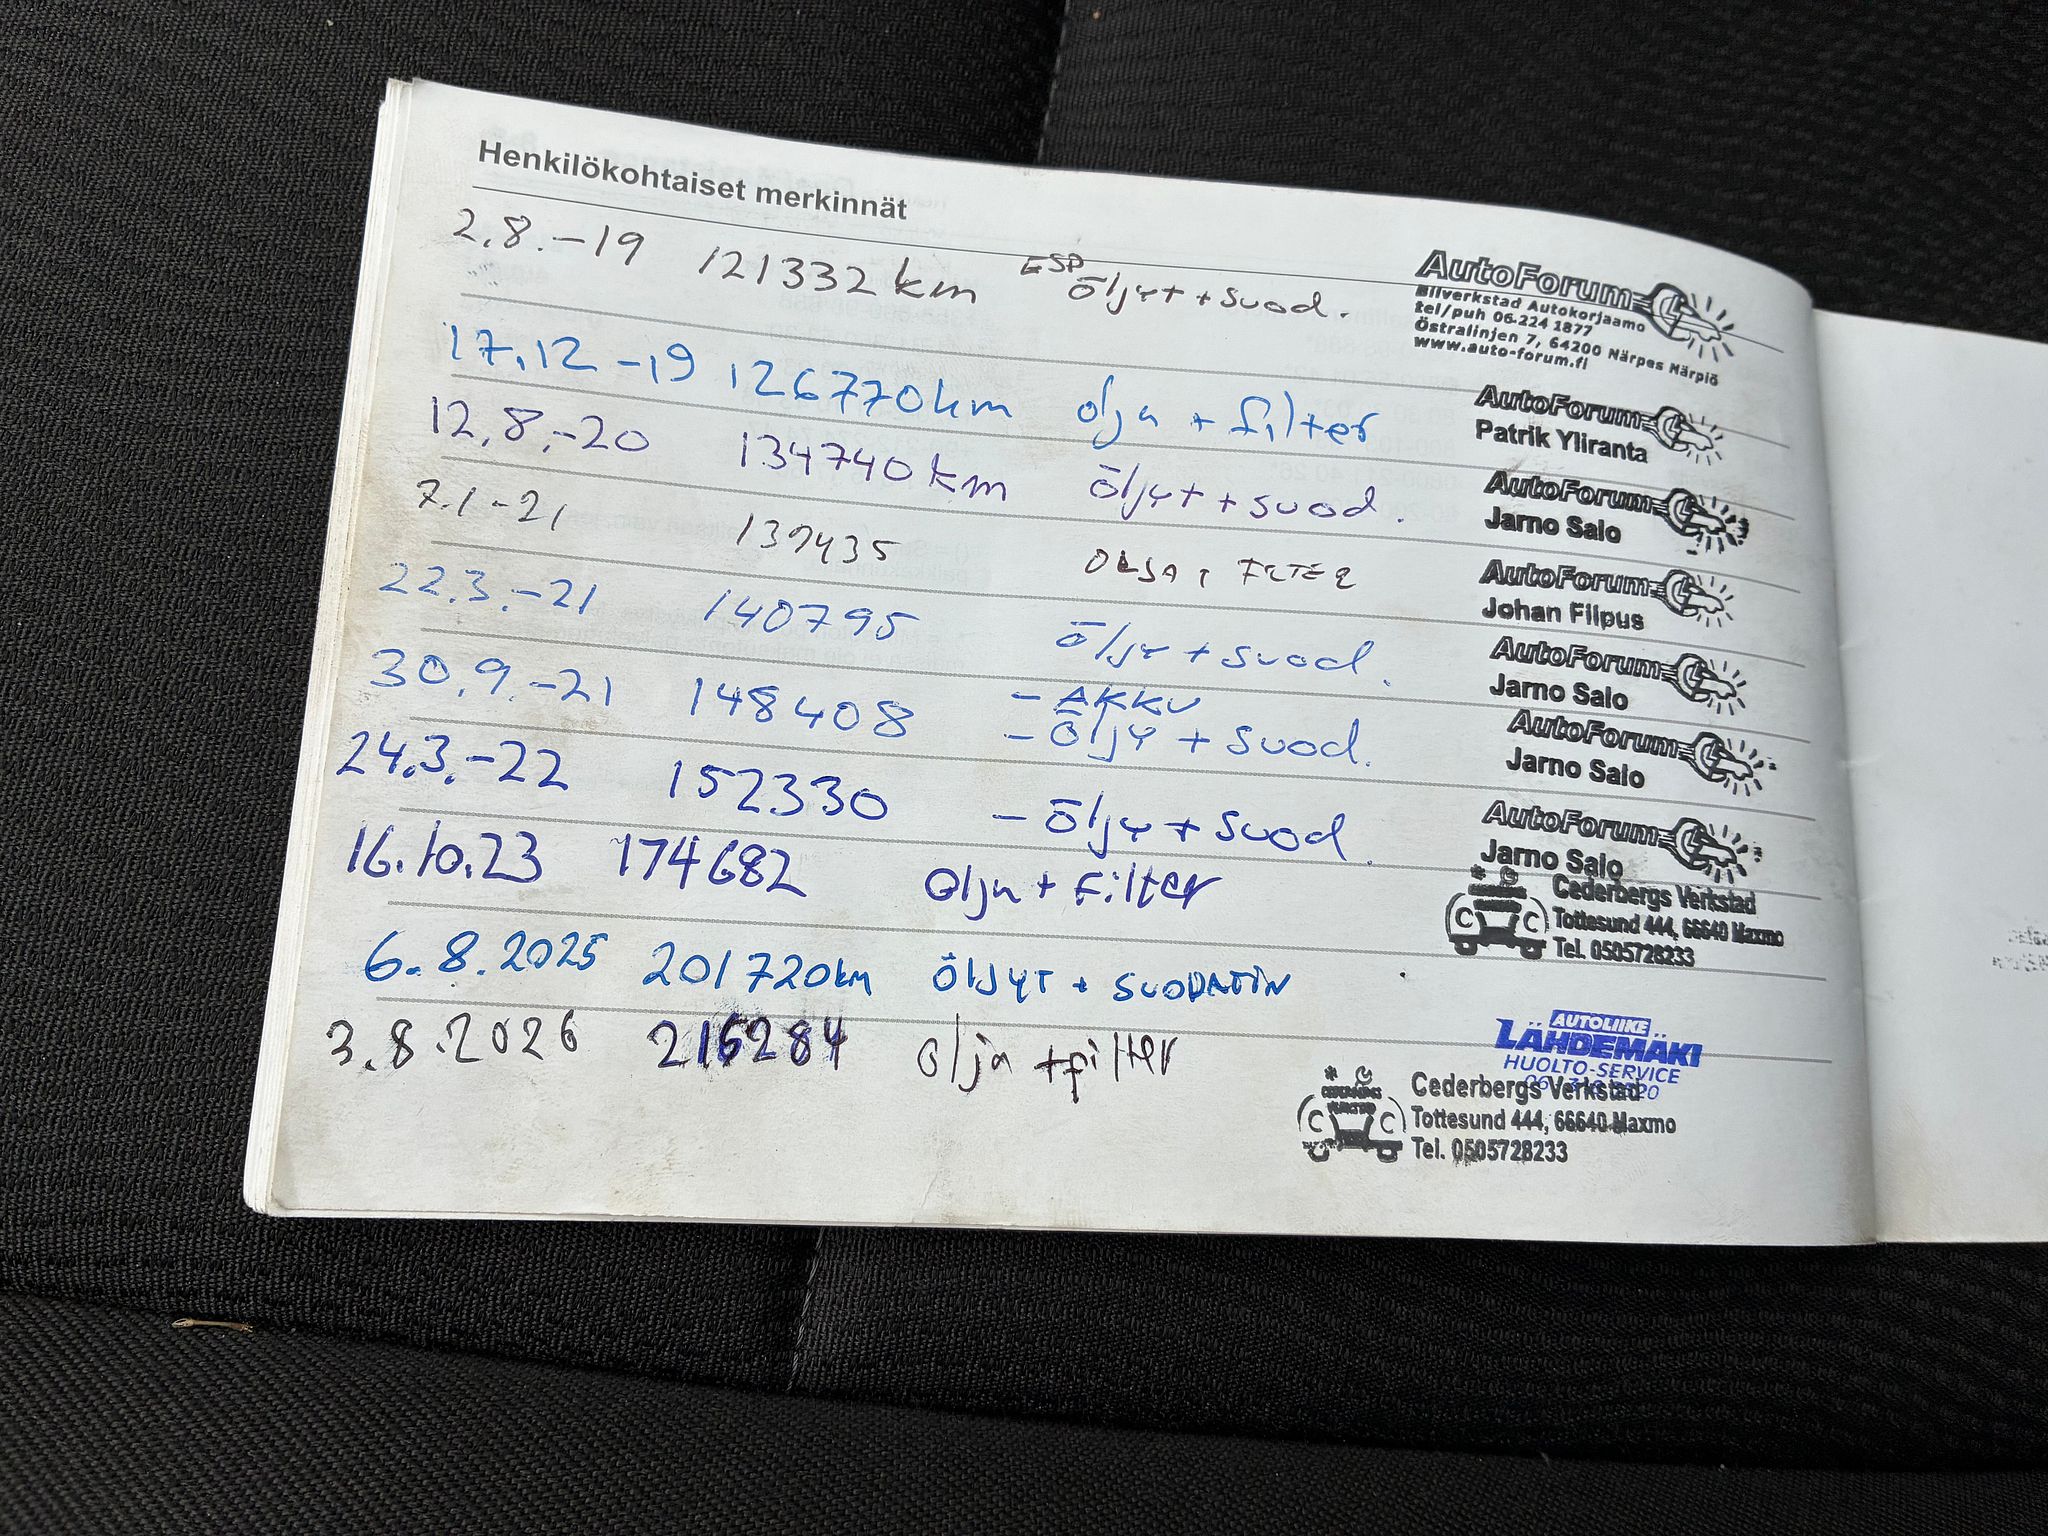 Henkilökohtaiset merkinnät
2.8.-19 121332 km ESP öljyt + suod.
AutoForum
Bilverkstad Autokorjaamo
tel/puh 06-224 1877
Östralinjen 7, 64200 Närpes Närpiö
www.auto-forum.fi
17.12-19 126770km olja + filter
AutoForum
Patrik Yliranta
12.8.-20 134740 km öljyt + suod.
AutoForum
Jarno Salo
7.1-21 139435 OLJA + FILTER
AutoForum
Johan Filpus
22.3.-21 140795 öljyt + suod.
AutoForum
Jarno Salo
30.9.-21 148408 - AKKU
- öljyt + suod.
AutoForum
Jarno Salo
24.3.-22 152330 - öljyt + suod.
AutoForum
Jarno Salo
16.10.23 174682 Olja + Filter
Cederbergs Verkstad
Tottesund 444, 66640 Maxmo
Tel. 0505728233
6.8.2025 201720km ÖLJYT + SUODATIN
AUTOLIIKE
LÄHDEMÄKI
HUOLTO-SERVICE
3.8.2026 216284 Olja + filter
Cederbergs Verkstad
Tottesund 444, 66640 Maxmo
Tel. 0505728233